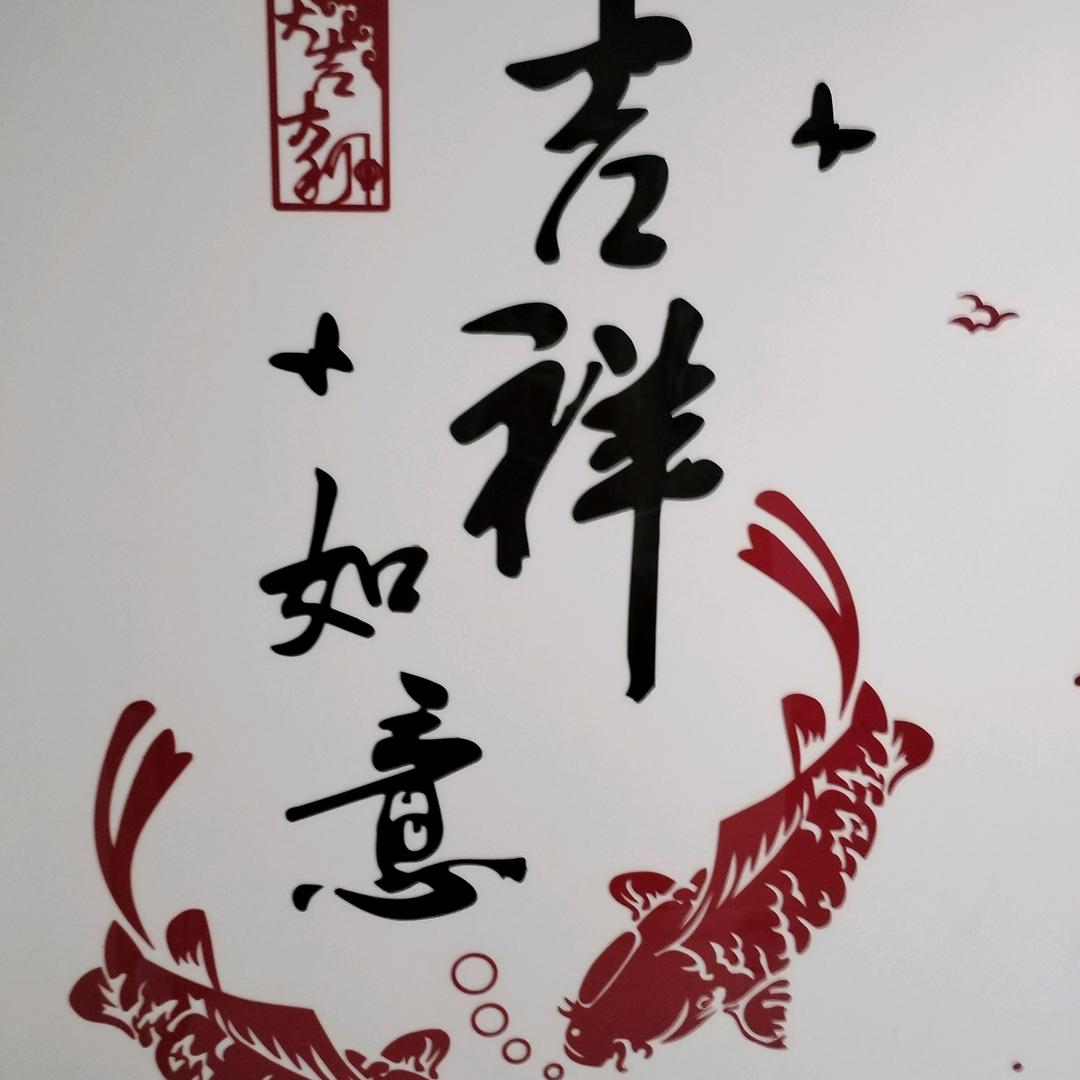 吉祥
如意
大吉
大利